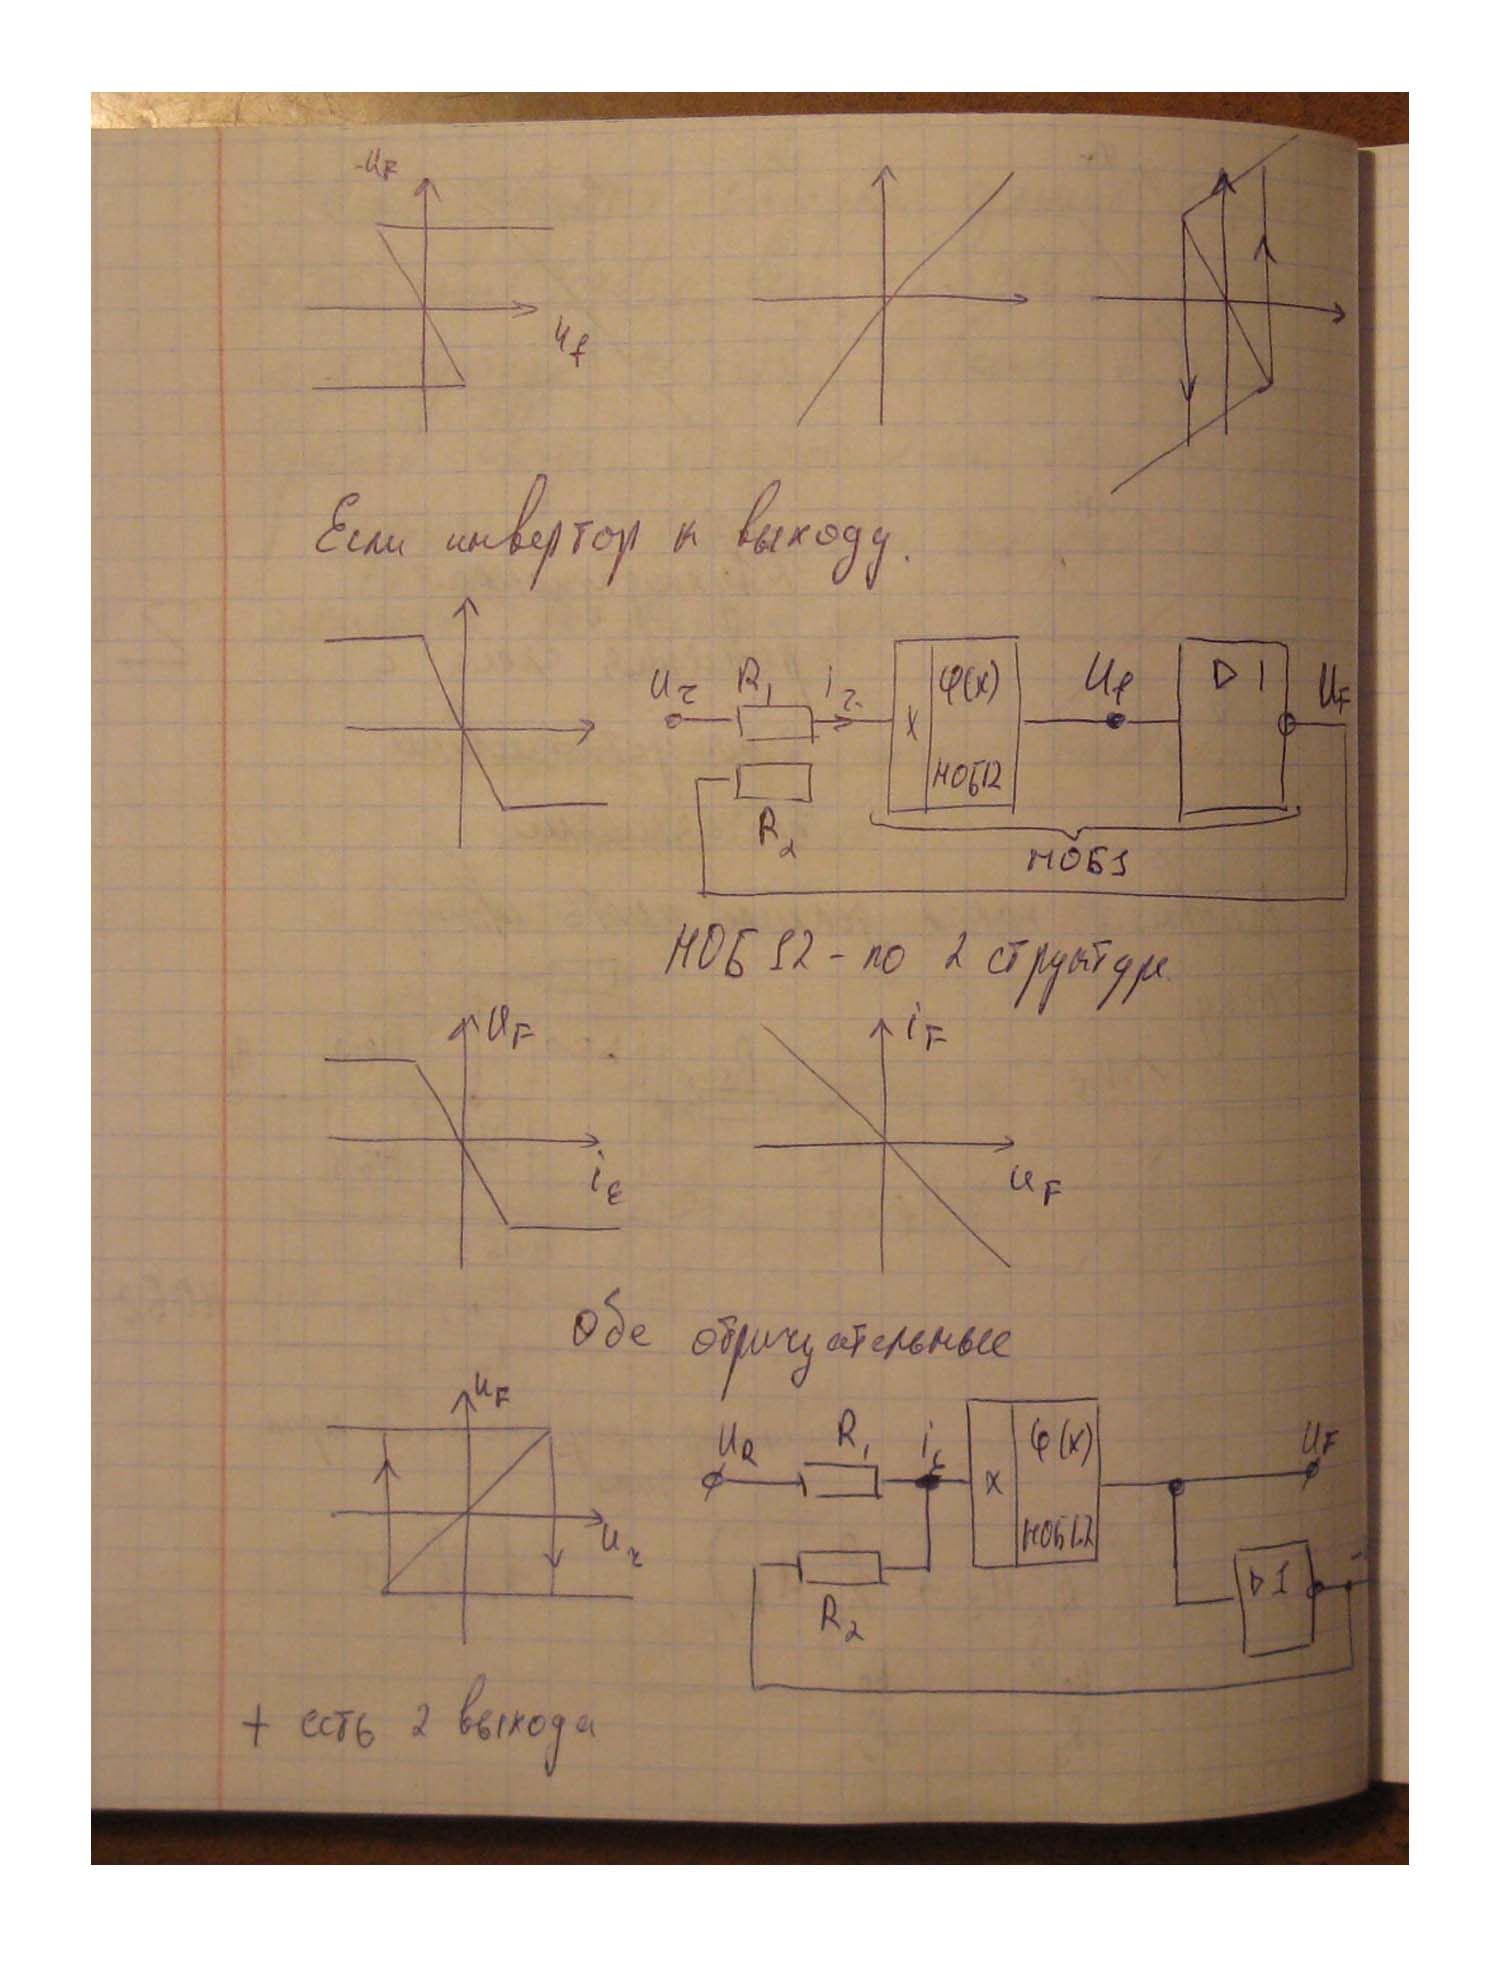 -U_F
U_f
Если инвертор к выходу.
U_r R_1 i_r φ(x) U_f ▷ 1 U_F
X
НОБ12
R_2
НОБ1
НОБ12 - по 2 структуре
U_F i_F
i_ε U_F
Обе отрицательные
U_F
U_R R_1 i_ε φ(x) U_F
X
U_r НОБ12
▷ 1
R_2
+ есть 2 выхода